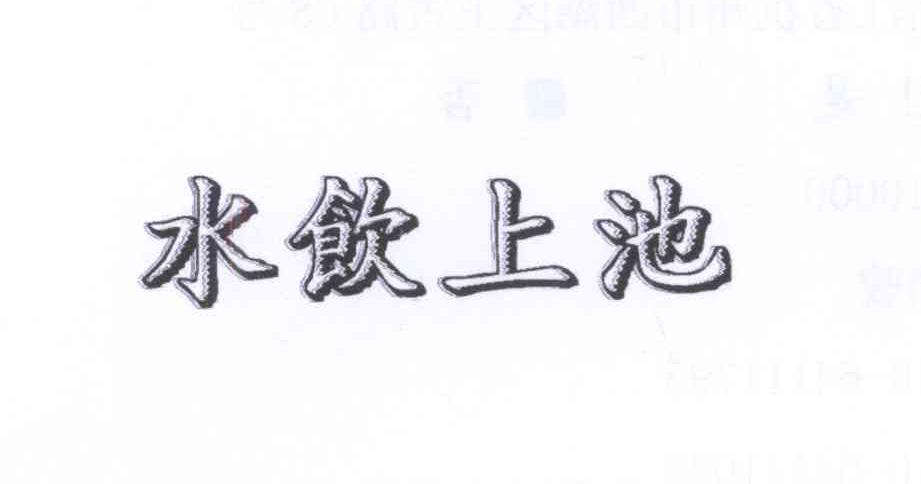 水飲上池